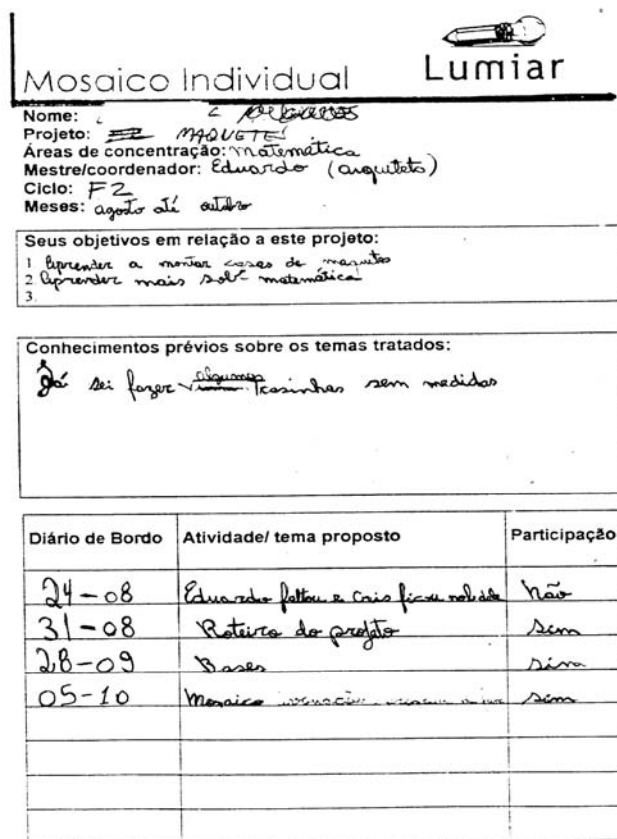 Lumiar
Mosaico Individual
Nome:
Projeto: MAQUETE
Áreas de concentração: matemática
Mestre/coordenador: Eduardo (arquiteto)
Ciclo: F2
Meses: agosto até outubro
Seus objetivos em relação a este projeto:
1 Aprender a montar casas de maquetes
2 Aprender mais sob- matemática
3.
Conhecimentos prévios sobre os temas tratados:
Já sei fazer algumas casinhas sem medidas
Diário de Bordo Atividade/ tema proposto Participação
24-08 Eduardo faltou e Cais ficou Não
31-08 Roteiro do projeto sim
28-09 Bases sim
05-10 Mosaico sim